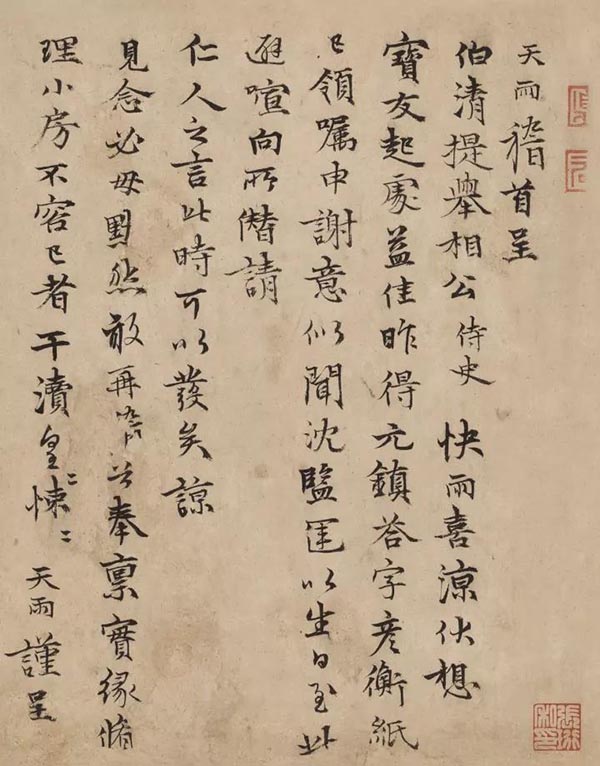 天雨稽首呈
伯清提舉相公侍史 快雨喜涼伏想
寶友起處益佳昨得元鎮答字彥衡紙
已領囑申謝意似聞沈監運以生日至此
避喧向所僭請
仁人之言此時可以發矣諒
見念必毋默然敢再囗首奉稟實緣脩
理小房不容已者干瀆皇二悚二
天雨謹呈